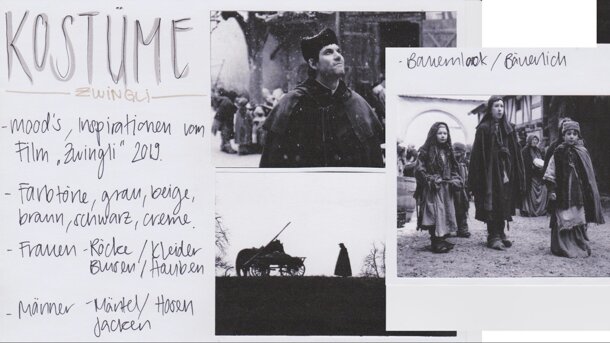 KOSTÜME
ZWINGLI
- Mood's, Inspirationen vom
Film „Zwingli" 2019.
- Farbtöne, grau, beige,
braun, schwarz, creme.
- Frauen - Röcke / Kleider
Blusen / Hauben
- Männer - Mäntel / Hosen
Jacken
- Bauernlook / Bäuerlich